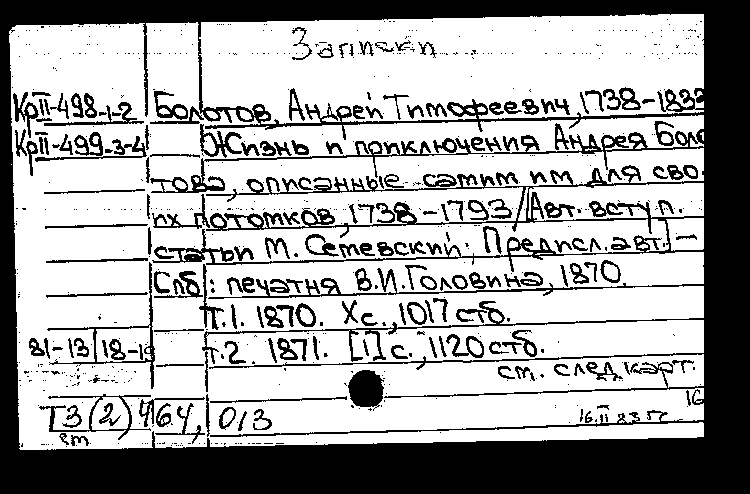 Записки
КрII-498-1-2 Болотов, Андрей Тимофеевич, 1738-1833
КрII-499-3-4 Жизнь и приключения Андрея Боло
това, описанные самим им для сво-
их потомков, 1738-1793/[Авт. вступ.
статьи М. Семевский; Предисл. авт.] —
Спб: печатня В.И.Головина, 1870.
Т.1. 1870. Xс., 1017 стб.
81-13/18-19 т.2. 1871. [1] с., 1120 стб.
см. след карт.
Т3(2)464, 013
16